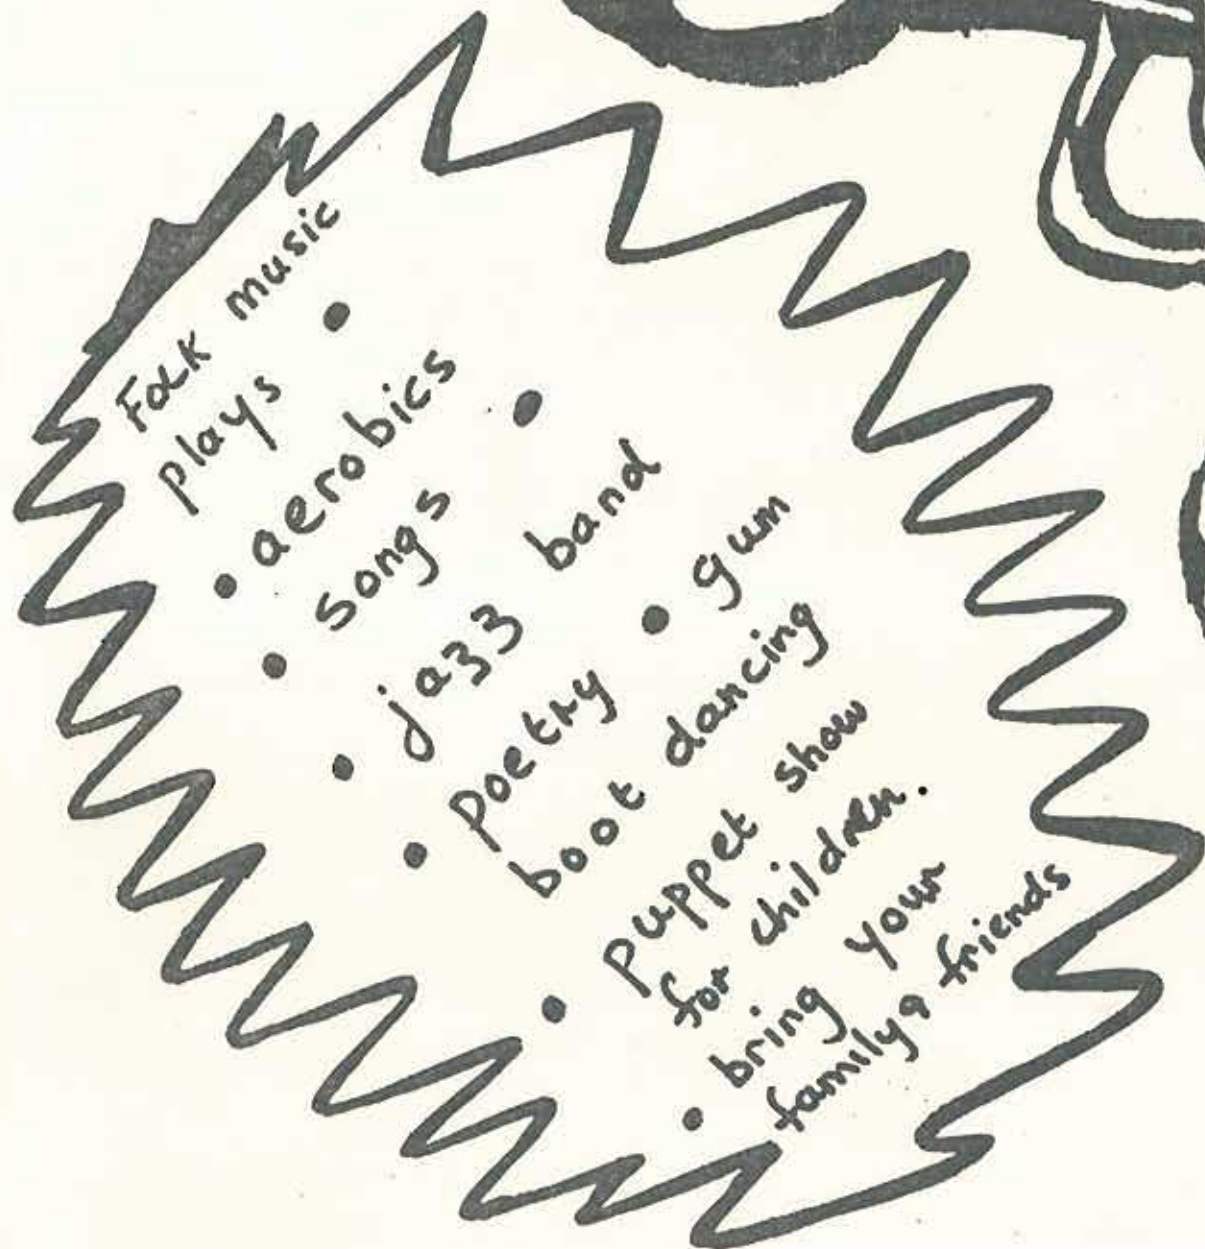 Folk music
plays •
• aerobics
• songs •
• jazz band
• poetry • gum
boot dancing
• puppet show
for children.
• bring your
family & friends